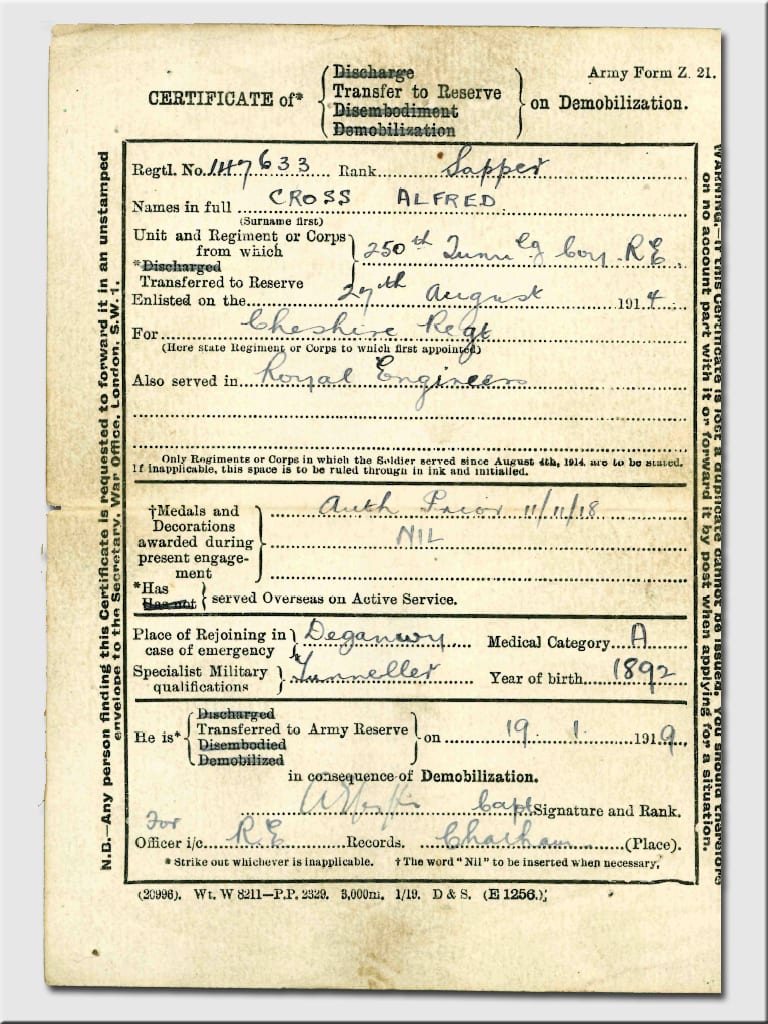 Army Form Z. 21.
CERTIFICATE of*
Discharge
Transfer to Reserve
Disembodiment
Demobilization
on Demobilization.
Regtl. No. 147633 Rank Sapper
Names in full CROSS ALFRED
(Surname first)
Unit and Regiment or Corps
from which
*Discharged
Transferred to Reserve
250th Tunn'lg Coy. R.E.
Enlisted on the 27th August 1914
For Cheshire Regt
(Here state Regiment or Corps to which first appointed)
Also served in Royal Engineers
Only Regiments or Corps in which the Soldier served since August 4th, 1914. are to be stated.
If inapplicable, this space is to be ruled through in ink and initialled.
†Medals and
Decorations
awarded during
present engage-
ment
Auth Prior 11/11/18
NIL
*Has
Has not
served Overseas on Active Service.
Place of Rejoining in
case of emergency
Deganwy Medical Category A
Specialist Military
qualifications
Tunneller Year of birth 1892
He is*
Discharged
Transferred to Army Reserve
Disembodied
Demobilized
on 19 1 1919.
in consequence of Demobilization.
Capt Signature and Rank.
For
Officer i/c R.E Records. Chatham (Place).
* Strike out whichever is inapplicable. † The word "Nil" to be inserted when necessary.
(20996). Wt. W 8211—P.P. 2329. 3,000m. 1/19. D & S. (E 1256.)
N.B.—Any person finding this Certificate is requested to forward it in an unstamped
envelope to the Secretary, War Office, London, S.W. 1.
WARNING.—If this Certificate is lost a duplicate cannot be issued. You should therefore
on no account part with it or forward it by post when applying for a situation.